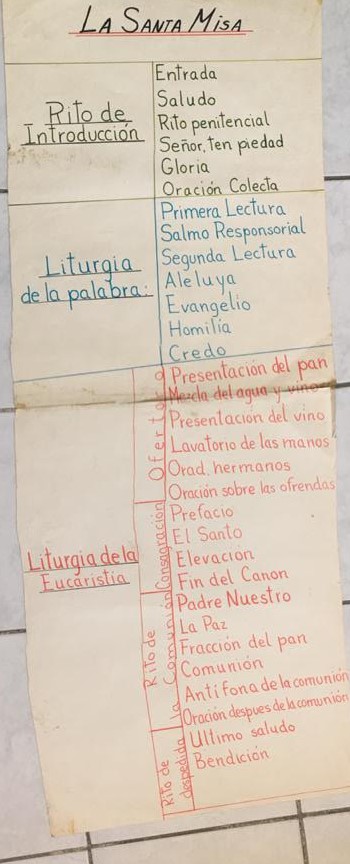 LA SANTA MISA
Rito de
Introducción
Entrada
Saludo
Rito penitencial
Señor, ten piedad
Gloria
Oración Colecta
Liturgia
de la palabra:
Primera Lectura
Salmo Responsorial
Segunda Lectura
Aleluya
Evangelio
Homilía
Credo
Liturgia de la
Eucaristia
Ofertorio
Presentación del pan
Mezcla del agua y vino
Presentación del vino
Lavatorio de las manos
Orad, hermanos
Oración sobre las ofrendas
Consagración
Prefacio
El Santo
Elevación
Fin del Canon
Rito de
la Comunión
Padre Nuestro
La Paz
Fracción del pan
Comunión
Antífona de la comunión
Oración despues de la comunión
Rito de
despedida
Ultimo saludo
Bendición